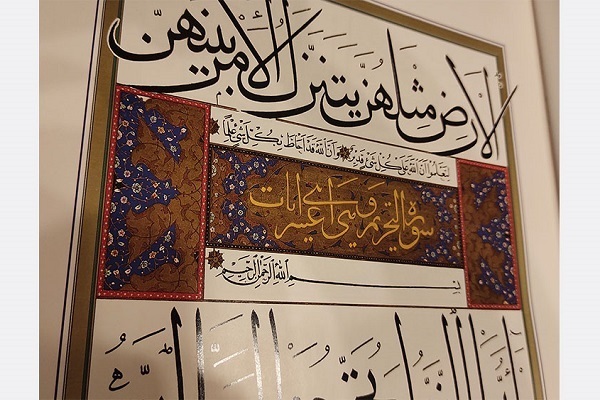 الْأَرْضِ مِثْلَهُنَّ يَتَنَزَّلُ الْأَمْرُ بَيْنَهُنَّ
لِتَعْلَمُوا أَنَّ اللَّهَ عَلَى كُلِّ شَيْءٍ قَدِيرٌ وَأَنَّ اللَّهَ قَدْ أَحَاطَ بِكُلِّ شَيْءٍ عِلْمًا
سورة التحريم وهي اثنى عشر ايات
بِسْمِ اللَّهِ الرَّحْمَنِ الرَّحِيمِ